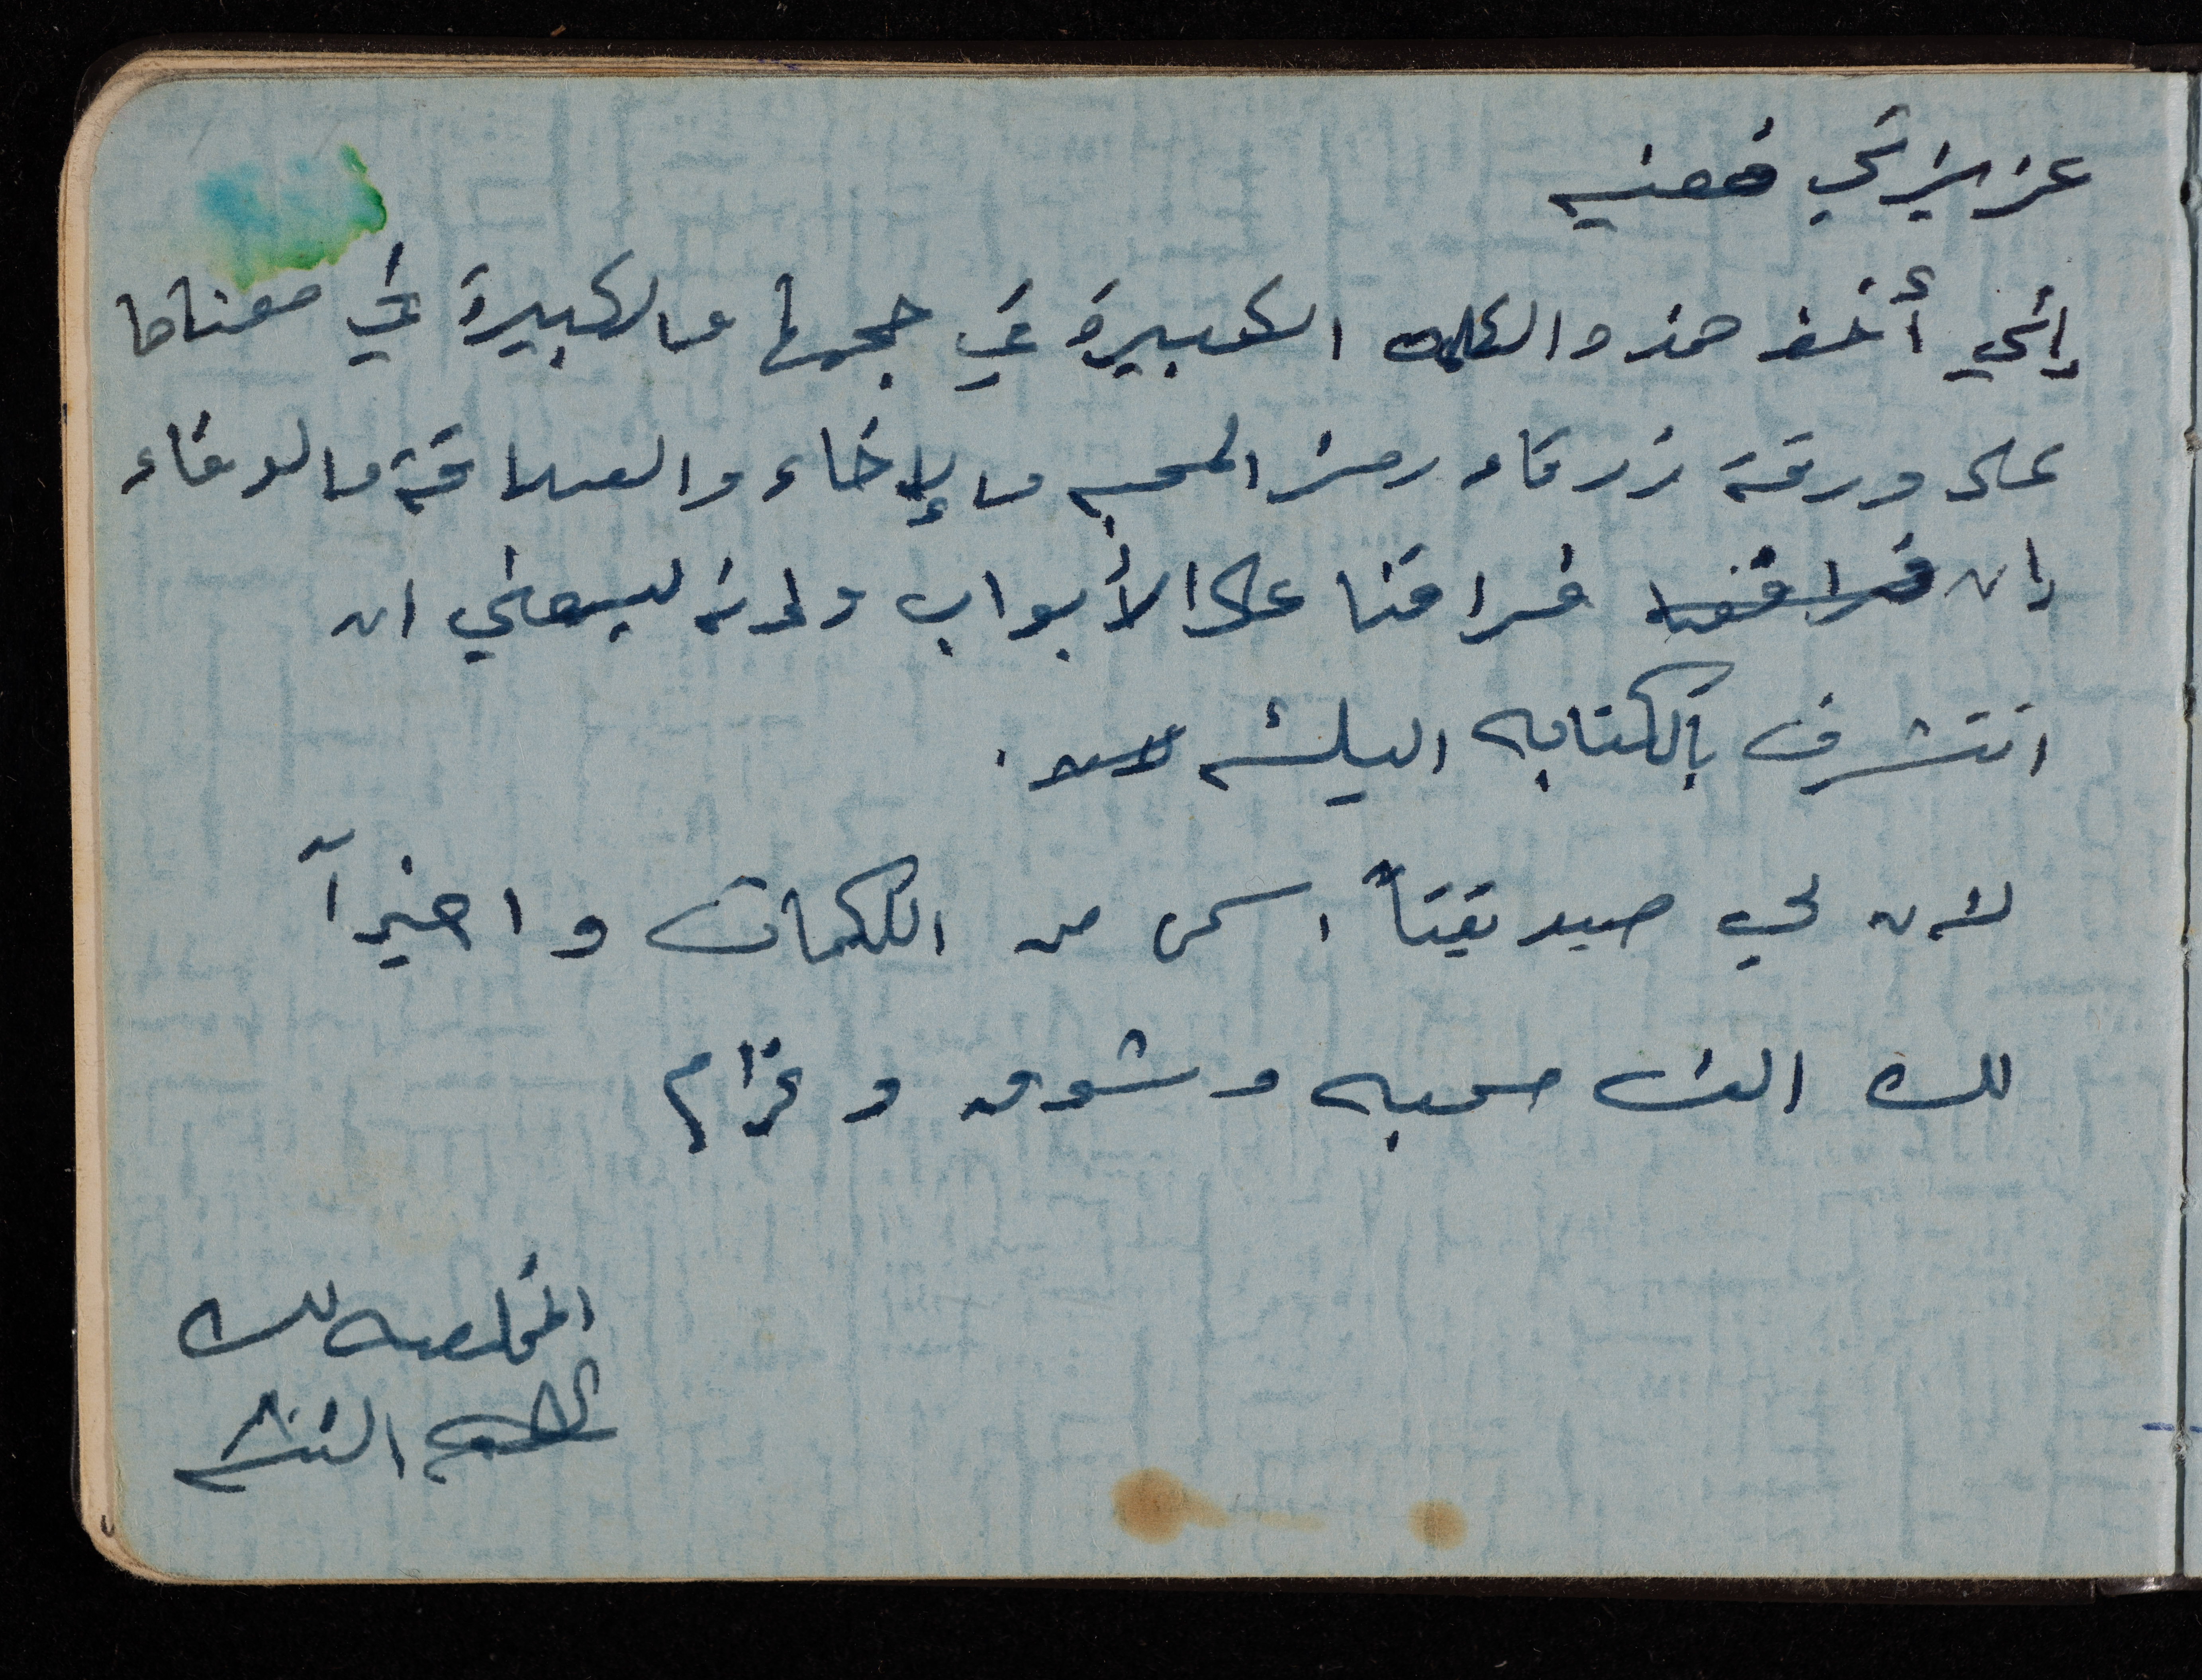 عزيزتي
إني أخط هذه الكلمه الكبيرة في حجمها والكبيرة في معناها
على ورقة زرقاء رمز المحبه والإخاء والصداقة والوفاء
إن فراقنا على الأبواب ولانه ليسعني ان
اتشرف بالكتابه اليك
لأن لي صديقتاً اسمى من الكلمات واخيراً
لك الف محبه وشوق وغرام
المخلصه لك